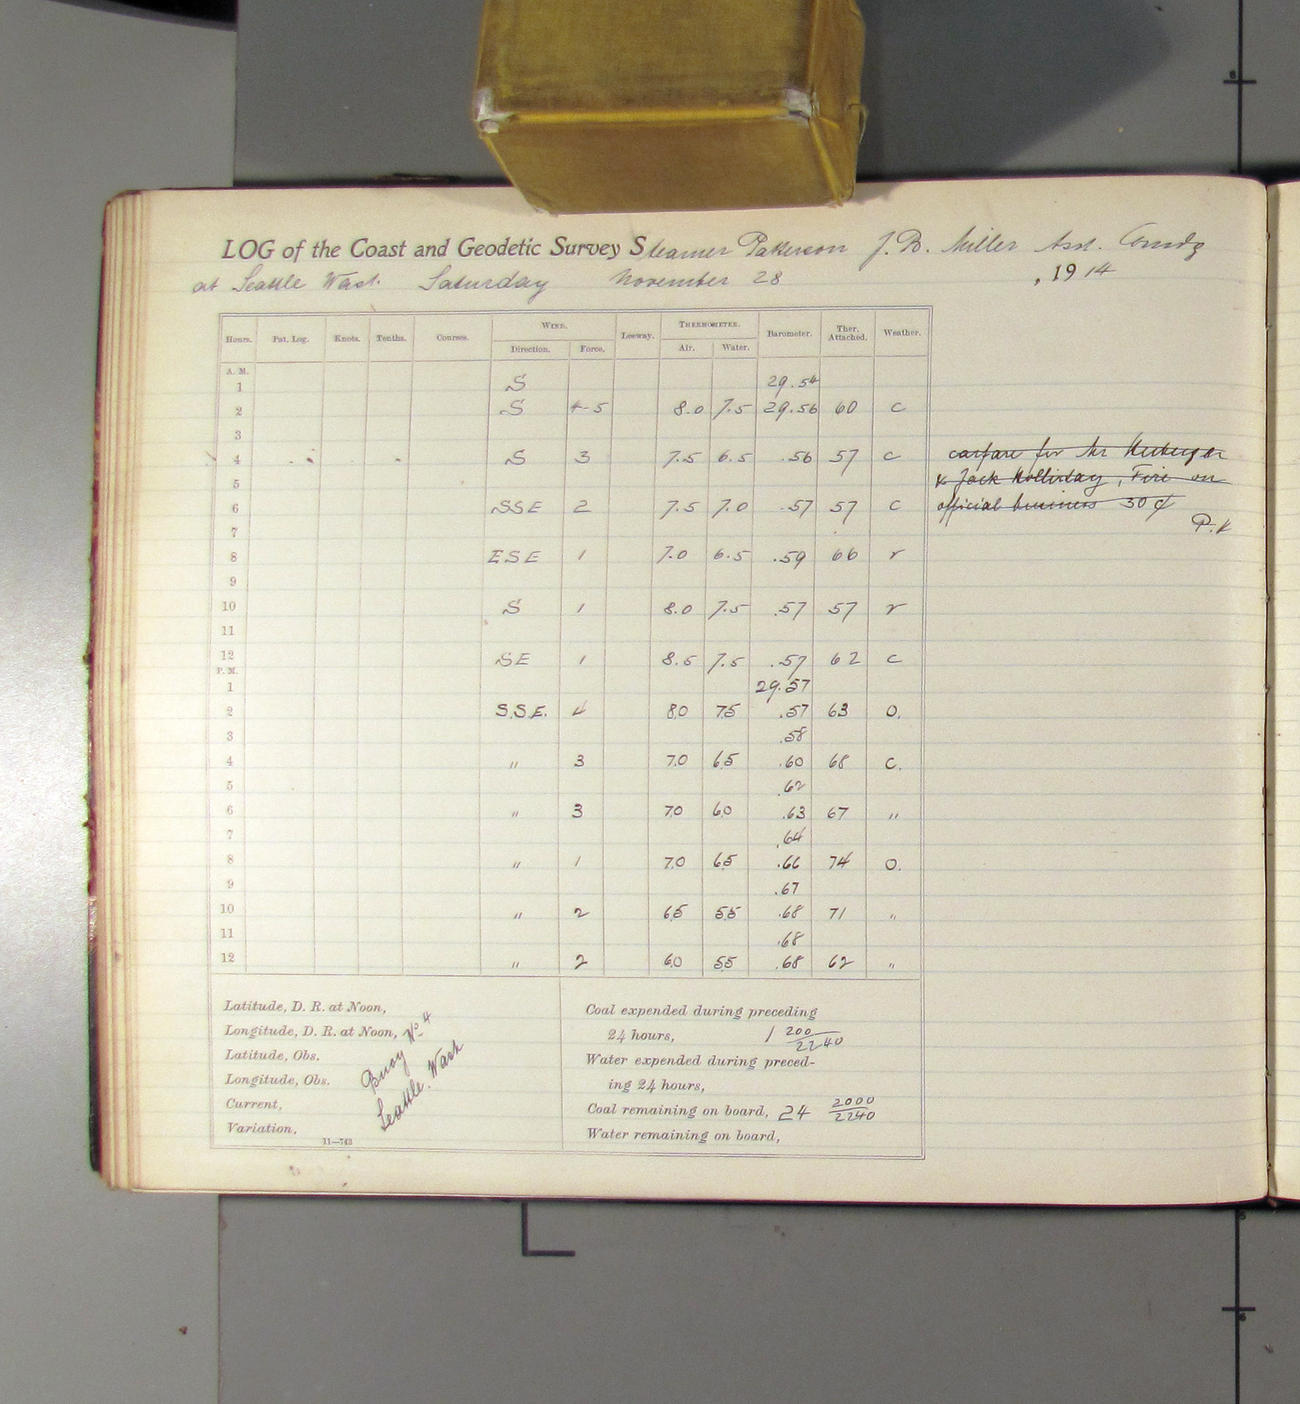 LOG of the Coast and Geodetic Survey Steamer Patterson J. B. Miller Asst. Comdg
at Seattle Wash. Saturday November 28, 1914
Hours. Pat. Log. Knots. Tenths. Courses. WIND. Leeway. THERMOMETER. Barometer. Ther. Attached. Weather.
Direction. Force. Air. Water.
A. M.
1 S 29.54
2 S 4-5 8.0 7.5 29.56 60 c
3
4 S 3 7.5 6.5 .56 57 c
5
6 SSE 2 7.5 7.0 .57 57 c
7
8 ESE 1 7.0 6.5 .59 66 r
9
10 S 1 8.0 7.5 .57 57 r
11
12 SE 1 8.5 7.5 .57 62 c
P. M.
1 29.57
2 S.S.E. 4 80 75 .57 63 O.
3 .58
4 " 3 70 65 .60 68 C.
5 .62
6 " 3 70 60 .63 67 "
7 .64
8 " 1 70 65 .66 74 O.
9 .67
10 " 2 65 55 .68 71 "
11 .68
12 " 2 60 55 .68 62 "
carfare for Mr
& Jack Holliday, Fire on
official business 30¢
P.K
Latitude, D. R. at Noon,
Longitude, D. R. at Noon,
Latitude, Obs.
Longitude, Obs.
Current,
Variation,
Buoy No 4
Seattle. Wash
11—743
Coal expended during preceding
24 hours, 1 200/2240
Water expended during preced-
ing 24 hours,
Coal remaining on board, 24 2000/2240
Water remaining on board,